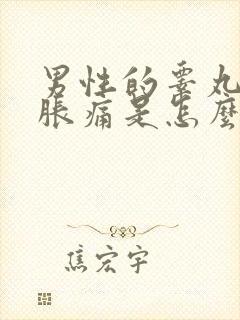 男性的睾丸
脹痛是怎麼
焦宏宇